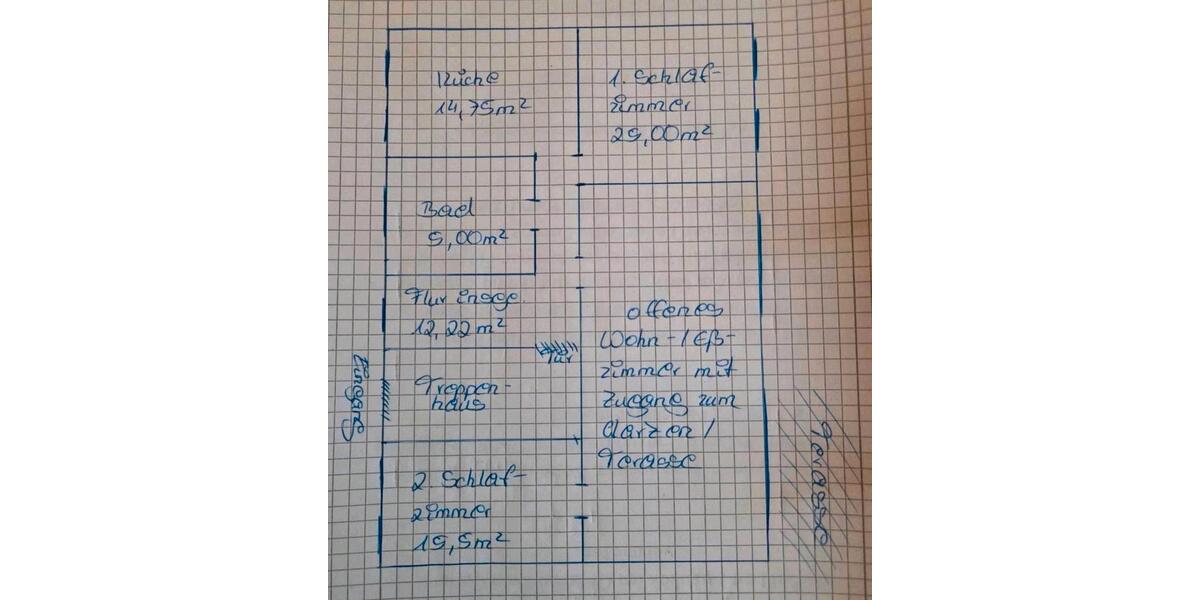 Küche
14,75m²
1. Schlaf-
zimmer
25,00m²
Bad
5,00m²
Flur
12,22m²
Tür
Eingang
Treppen-
haus
offenes
Wohn-/Eß-
zimmer mit
Zugang zum
Garten/
Terasse
Terasse
2. Schlaf-
zimmer
15,5m²